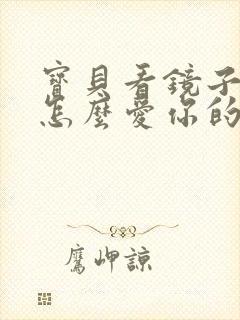 寶貝看鏡子
怎麼愛你的
鷹岬諒